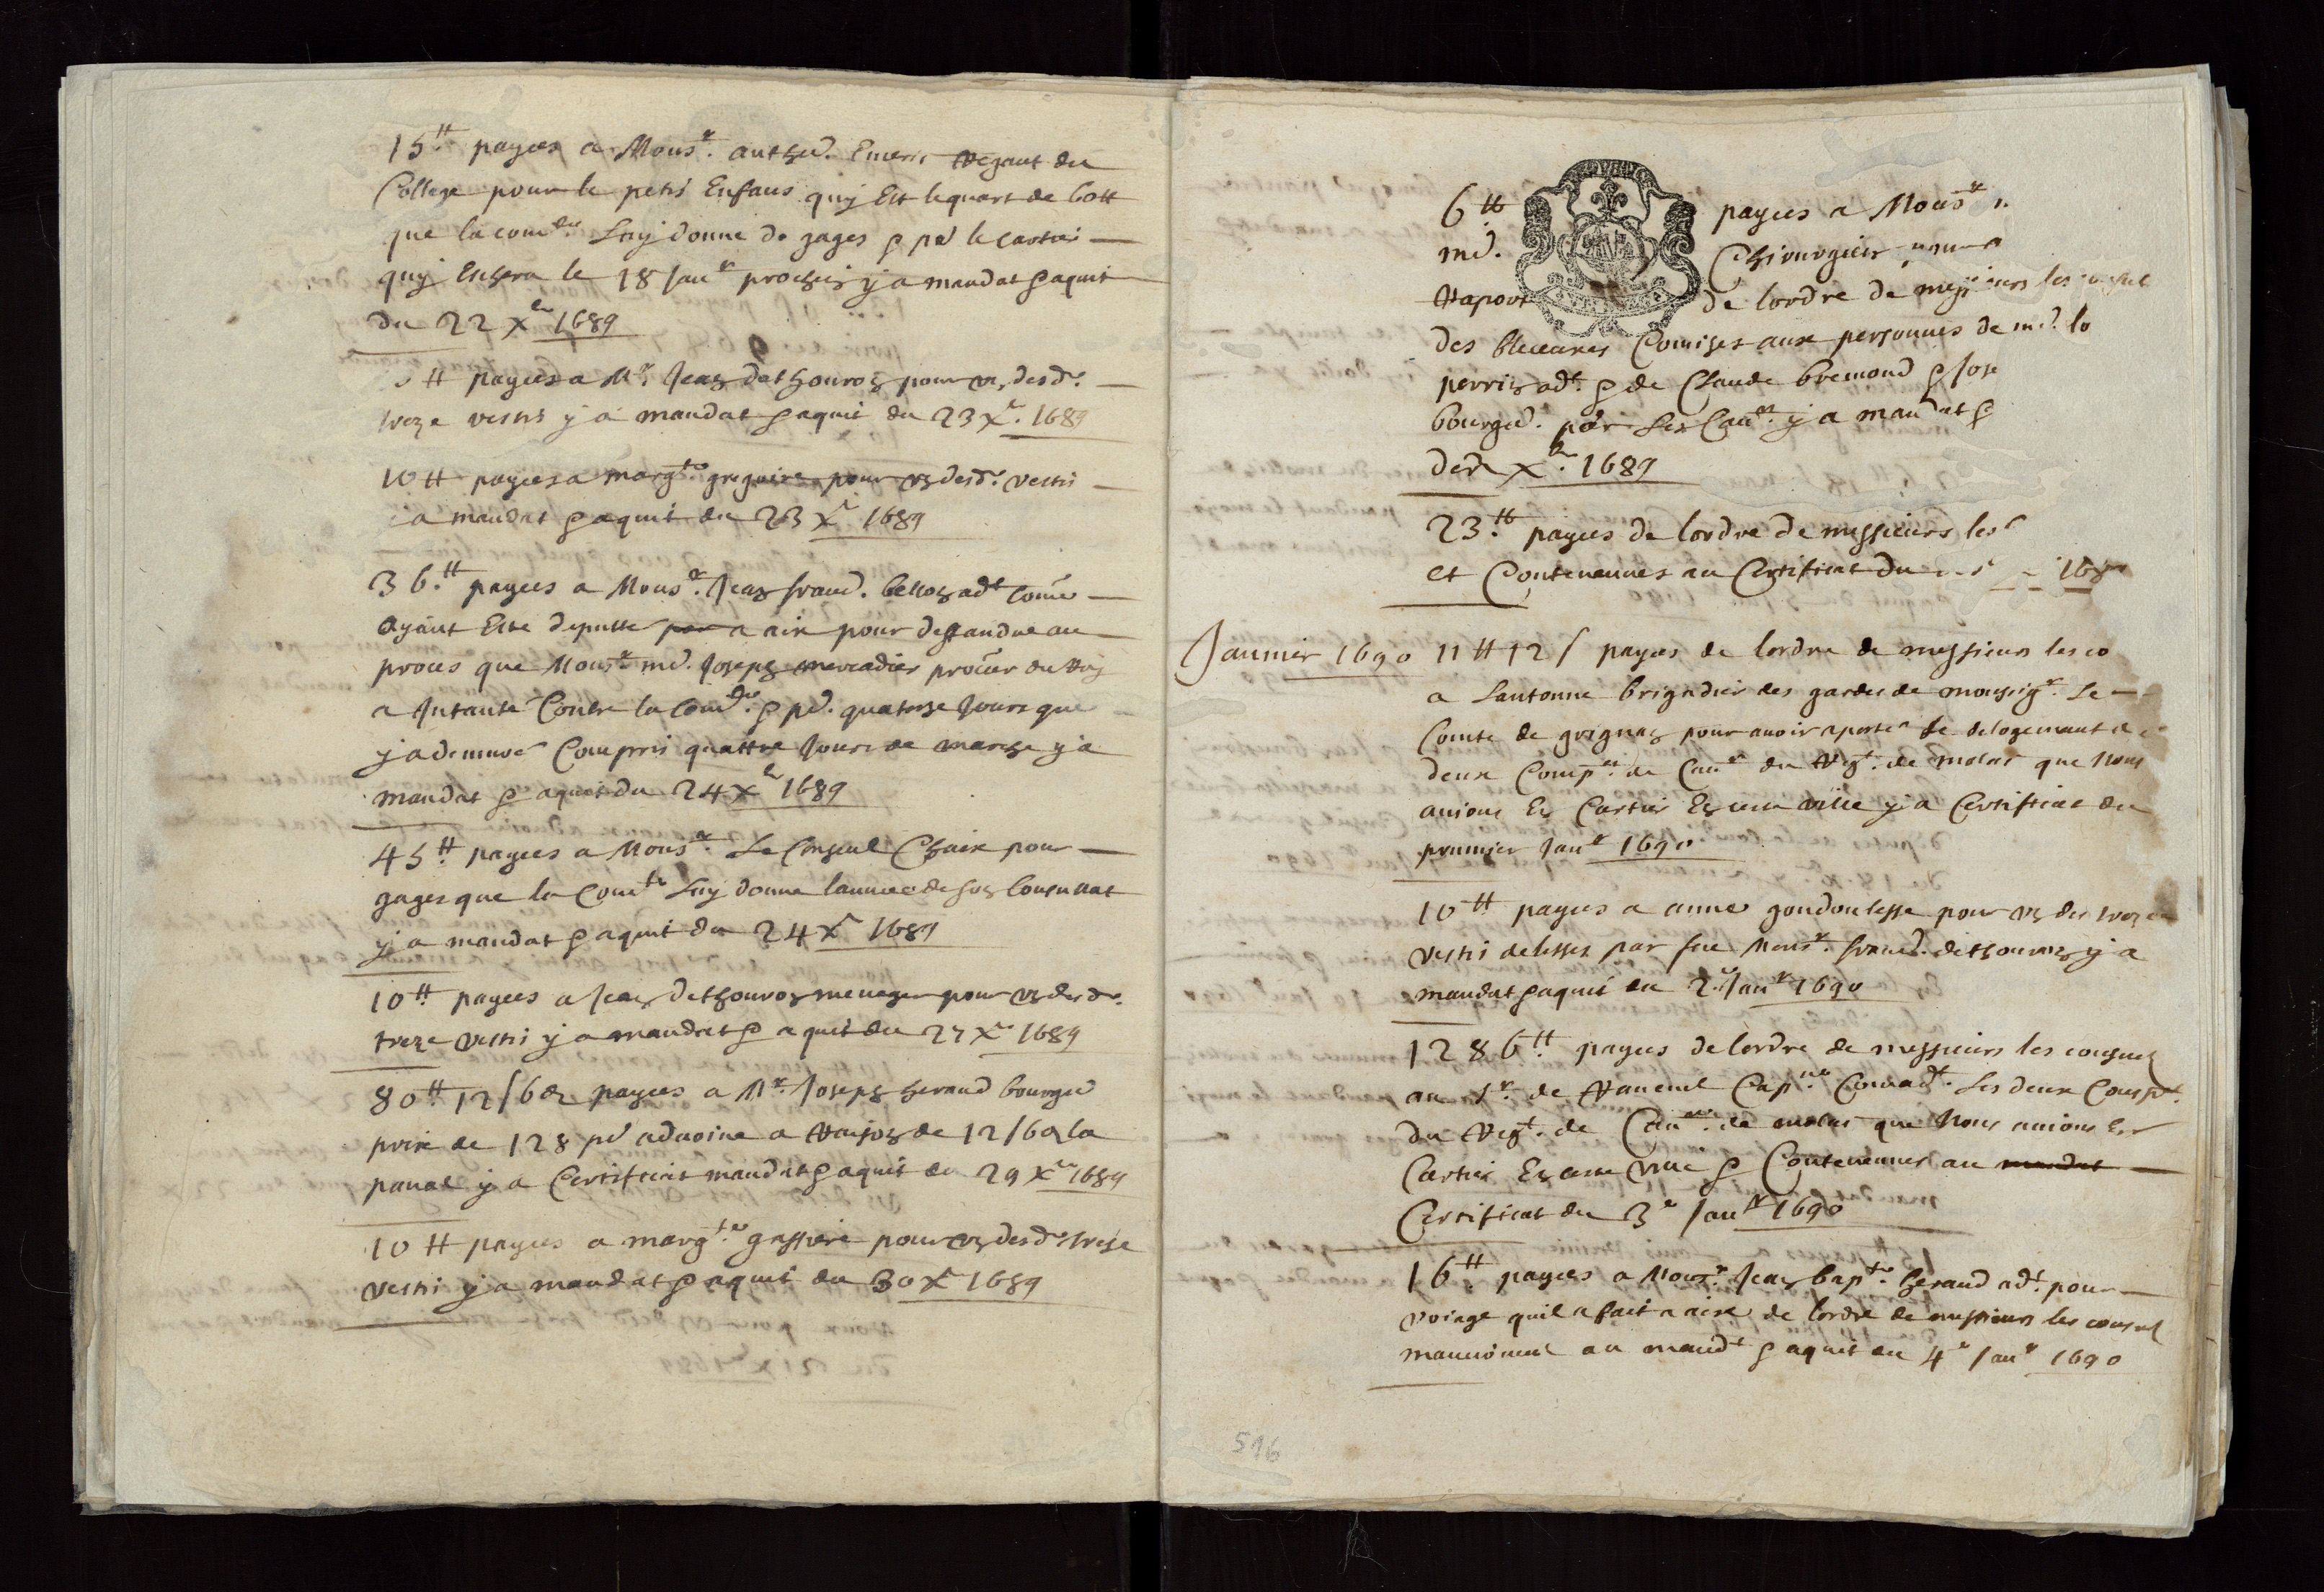 15ᵗᵗ payees a Monsʳ. anthᵉ. Emeric Regant du
College pour le petis Enfans quy Est lequart de 60tt
que la comᵗᵉ Luy donne de gages p nᵈ le cartier
quy Escherra le 18 Janʳ prochein y a mandat & aquit
du 22 Xᵇʳᵉ 1689
tt payees a Mʳ Jean dethouron pour un desdˢ
treze vestis y a mandat & aquit du 23 Xʳ. 1689
10 tt payees a margᵗᵉ gregoire pour un desdˢ vestis
a mandat & aquit du 23 Xʳ 1689
36.ᵗᵗ payees a Monsʳ. Jean francˢ. bellon adᵗ come
Ayant Este depute a aix pour deffandre au
proces que Monsʳ mᵉ. Joseph mercadier procur du Roy
a Intante Contre la comᵗᵉ. & pᵈ. quatorze Jours que
y a demuré Compris quattre Jours de marche y a
mandat & aquit du 24 Xᵇʳᵉ 1689
45ᵗᵗ payees a Monsʳ. Le Consul Chaix pour
gages que la Comᵗᵉ Luy donne lannee de son Consulat
y a mandat & aquit du 24 Xʳ 1689
10ᵗᵗ payees a Jean dethouron menager pour un desdˢ.
treze vestis y a mandat & aquit du 27 Xʳ 1689
80ᵗᵗ 12 ſ 6 d payees a Mʳ Joseph heraud bourgᵉ
prix de 128 pˡ advoine a Raison de 12 ſ 6 d la
panal y a Certificat mandat & aquit du 29 Xʳ 1689
10 tt payees a margᵗᵉ. gassiere pour un desdˢ treze
vestis y a mandat & aquit du 30 Xʳ 1689
6ᵗᵗ payees a Monsʳ
mᵉ. Chirurgien
Raport de lordre de messieurs les
des blecures Comises aux personnes de mᵉ.
perrin adᵗ. & de Claude bremond & Jose
bourgᵉ. par Les Cauʳˢ. y a mandat &
Xᵇʳᵉ. 1689
23.ᵗᵗ payees de lordre de messieurs les
et Contenennes au Certificat du
Janvier 1690 11 tt 12 ſ payees de lordre de messieurs les co
a Lantonne brigadier des gardes de monsigʳ. Le
Comte de grignan pour avoir aporte Le delogemant de
deux Compᵉˢ. de Cauʳⁱᵉ du Regᵗ. de molac que Nous
avions En Cartier En cette ville y a Certificat du
prumier Janʳ 1690
10ᵗᵗ payees a anne gondoulesse pour un des treze
vestis delesses par feu Monsʳ. francˢ. dethouron y a
mandat & aquit du 2 Janʳ 1690
1286ᵗᵗ. payees de lordre de messieurs les consuls
au Sʳ. de Capⁿᵉ Comadᵗ. Les deux Compᵉˢ.
du Regᵗ. de Cauʳⁱᵉ. de molac que Nous avions En
Cartier En cette ville & Contenennes au mandat
Certificat du 3ᵉ Janʳ 1690
16ᵗᵗ payees a Monsʳ. Jean bapᵗᵉ. heraud adᵗ. pour
voiage quil a fait a aix de lordre de messieurs les consul
mancionné au mandᵗ & aquit du 4ᵉ Janʳ 1690
516